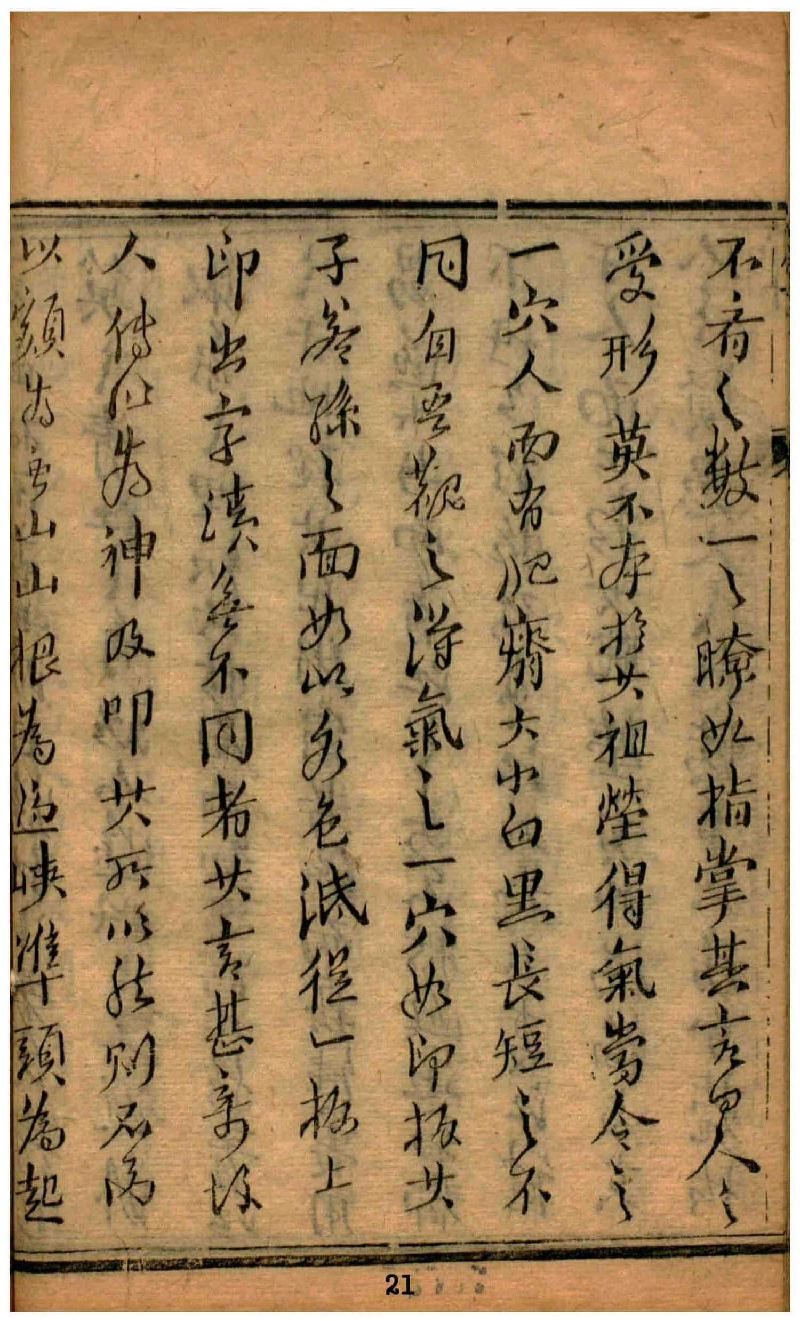 不肖之數一之瞭如指掌其言曰人之
受形英不本於共祖塋得氣嘗令之
一穴人而有肥瘠大小白黑長短之不
同自吾觀之得氣之一穴如印板共
子若孫之面如以水色紙從一板上
印出字漬無不同者共言甚奇
人傳以為神及叩共所以然則不過
以額為山山根為過峽準頭為起
21